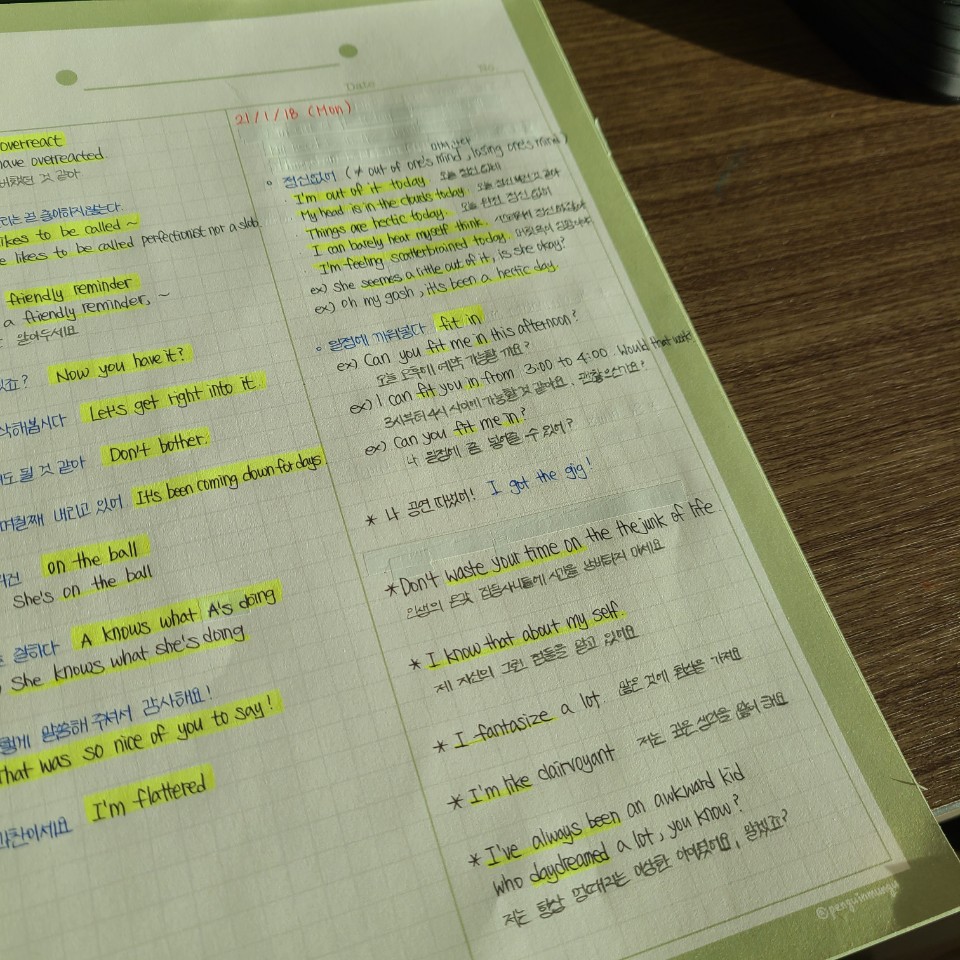 Date
No.
overreact
have overreacted
것 같아
likes to be called ~
e likes to be called perfectionist nor a slob.
friendly reminder
a friendly reminder, ~
알아두세요
있죠? Now you have it?
작해봅시다 Let's get right into it.
도 될 것 같아 Don't bother.
며칠째 내리고 있어 It's been coming down for days.
on the ball
She's on the ball
잘하다 A knows what A's doing
She knows what she's doing
렇게 말씀해 주셔서 감사해요!
That was so nice of you to say!
과찬이세요 I'm flattered
21/1/18 (Mon)
정신없어 (≠ out of one's mind, losing one's mind)
I'm out of it today.
My head is in the clouds today.
Things are hectic today.
I can barely hear myself think.
I'm feeling scatterbrained today.
ex) She seems a little out of it, is she okay?
ex) oh my gosh, it's been a hectic day.
일정에 끼워넣다 fit in
ex) Can you fit me in this afternoon?
오늘 오후에 예약 가능할까요?
ex) I can fit you in from 3:00 to 4:00. Would that work?
3시부터 4시 사이에 가능할 것 같아요. 괜찮으신가요?
ex) Can you fit me in?
나 일정에 좀 넣어줄 수 있어?
* 나 공연 따냈어! I got the gig!
* Don't waste your time on the the junk of life.
인생의 온갖 잡동사니들에 시간을 낭비하지 마세요
* I know that about my self.
제 자신의 그런 점들을 알고 있어요
* I fantasize a lot. 많은 것에 환상을 가져요
* I'm like clairvoyant 저는
* I've always been an awkward kid
who daydreamed a lot, you know?
저는 항상 멍때리는 이상한 아이였어요, 알겠죠?
@penguinmingu